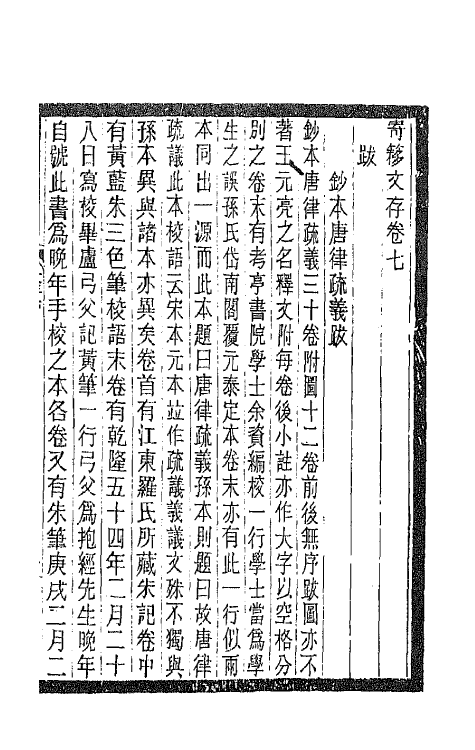 寄簃文存卷七
跋
鈔本唐律疏義跋
鈔本唐律疏義三十卷附圖十二卷前後無序跋圖亦不
著王元亮之名釋文附每卷後小註亦作大字以空格分
別之卷末有考亭書院學士余資編校一行學士當爲學
生之誤孫氏岱南閣覆元泰定本卷末亦有此一行似兩
本同出一源而此本題曰唐律疏義孫本則題曰故唐律
疏議此本校語云宋本元本竝作疏議義議文殊不獨與
孫本異與諸本亦異矣卷首有江東羅氏所藏朱記卷中
有黃藍朱三色筆校語末卷有乾隆五十四年二月二十
八日寫校畢盧弓父記黃筆一行弓父爲抱經先生晚年
自號此書爲晚年手校之本各卷又有朱筆庚戌二月二